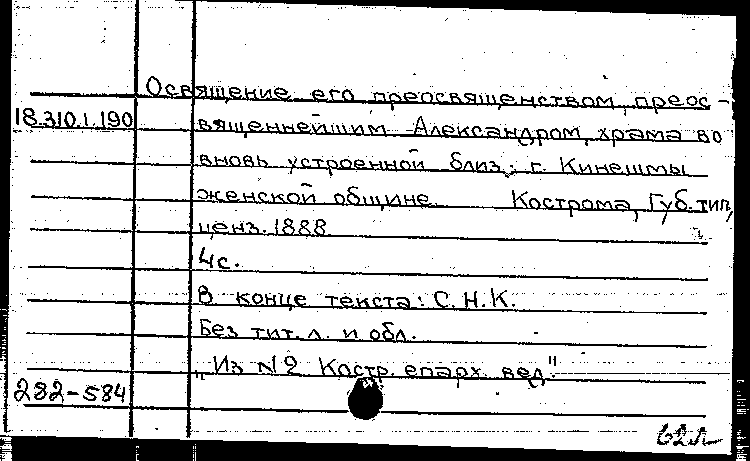 Освящение его преосвященством, преос-
18.310.1.190 вященнейшим Александром, храма во
вновь устроенной близ. г. Кинешмы
женской общине Кострома, Губ. тип,
ценз. 1888
4с.
В конце текста: С.Н.К.
Без тит. л. и обл.
„Из №2 Костр. епарх. вед".
282-584